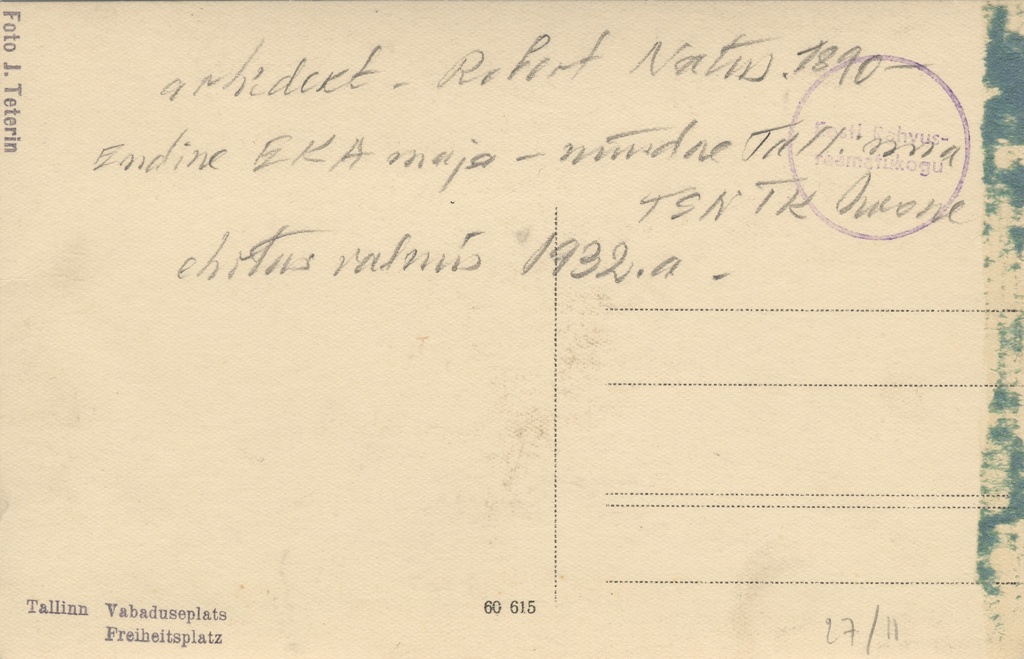 Foto J. Teterin
arhidekt - Robert Natus. 1890-
Endine EKA maja - nüüdne Tall. linna
TSN TK hoone
ehitus valmis 1932.a -
Eesti Rahvus-
raamatukogu
Tallinn Vabaduseplats
Freiheitsplatz
60 615
27/II